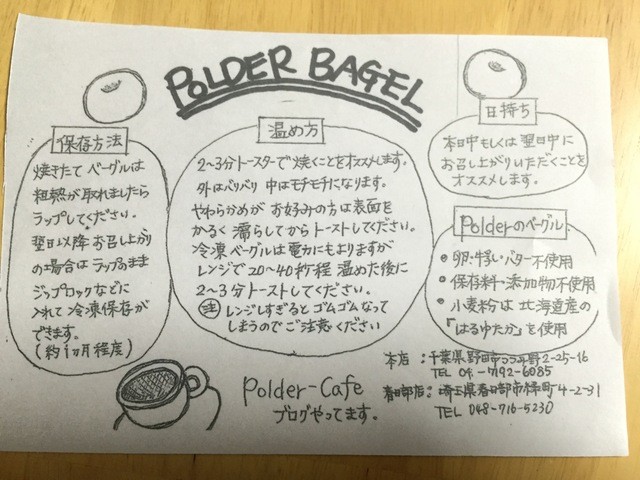 POLDER BAGEL
保存方法
焼きたてベーグルは
粗熱が取れましたら
ラップしてください。
翌日以降お召し上がり
の場合はラップのまま
ジップロックなどに
入れて冷凍保存が
できます。
(約1ヶ月程度)
温め方
2〜3分トースターで焼くことをオススメします。
外はパリパリ 中はモチモチになります。
やわらかめが お好みの方は表面を
かるく濡らしてからトーストしてください。
冷凍ベーグルは電力にもよりますが
レンジで20〜40秒程 温めた後に
2〜3分トーストしてください。
注 レンジしすぎるとゴムゴムなって
しまうのでご注意ください
日持ち
本日中もしくは翌日中に
お召し上がりいただくことを
オススメします。
Polderのベーグル
・卵・牛乳・バター不使用
・保存料・添加物不使用
・小麦粉は北海道産の
「はるゆたか」を使用
Polder-Cafe
ブログやってます。
本店:千葉県野田市つつみ野2-25-16
TEL 04-7192-6085
春日部店:埼玉県春日部市緑町4-2-31
TEL 048-716-5230